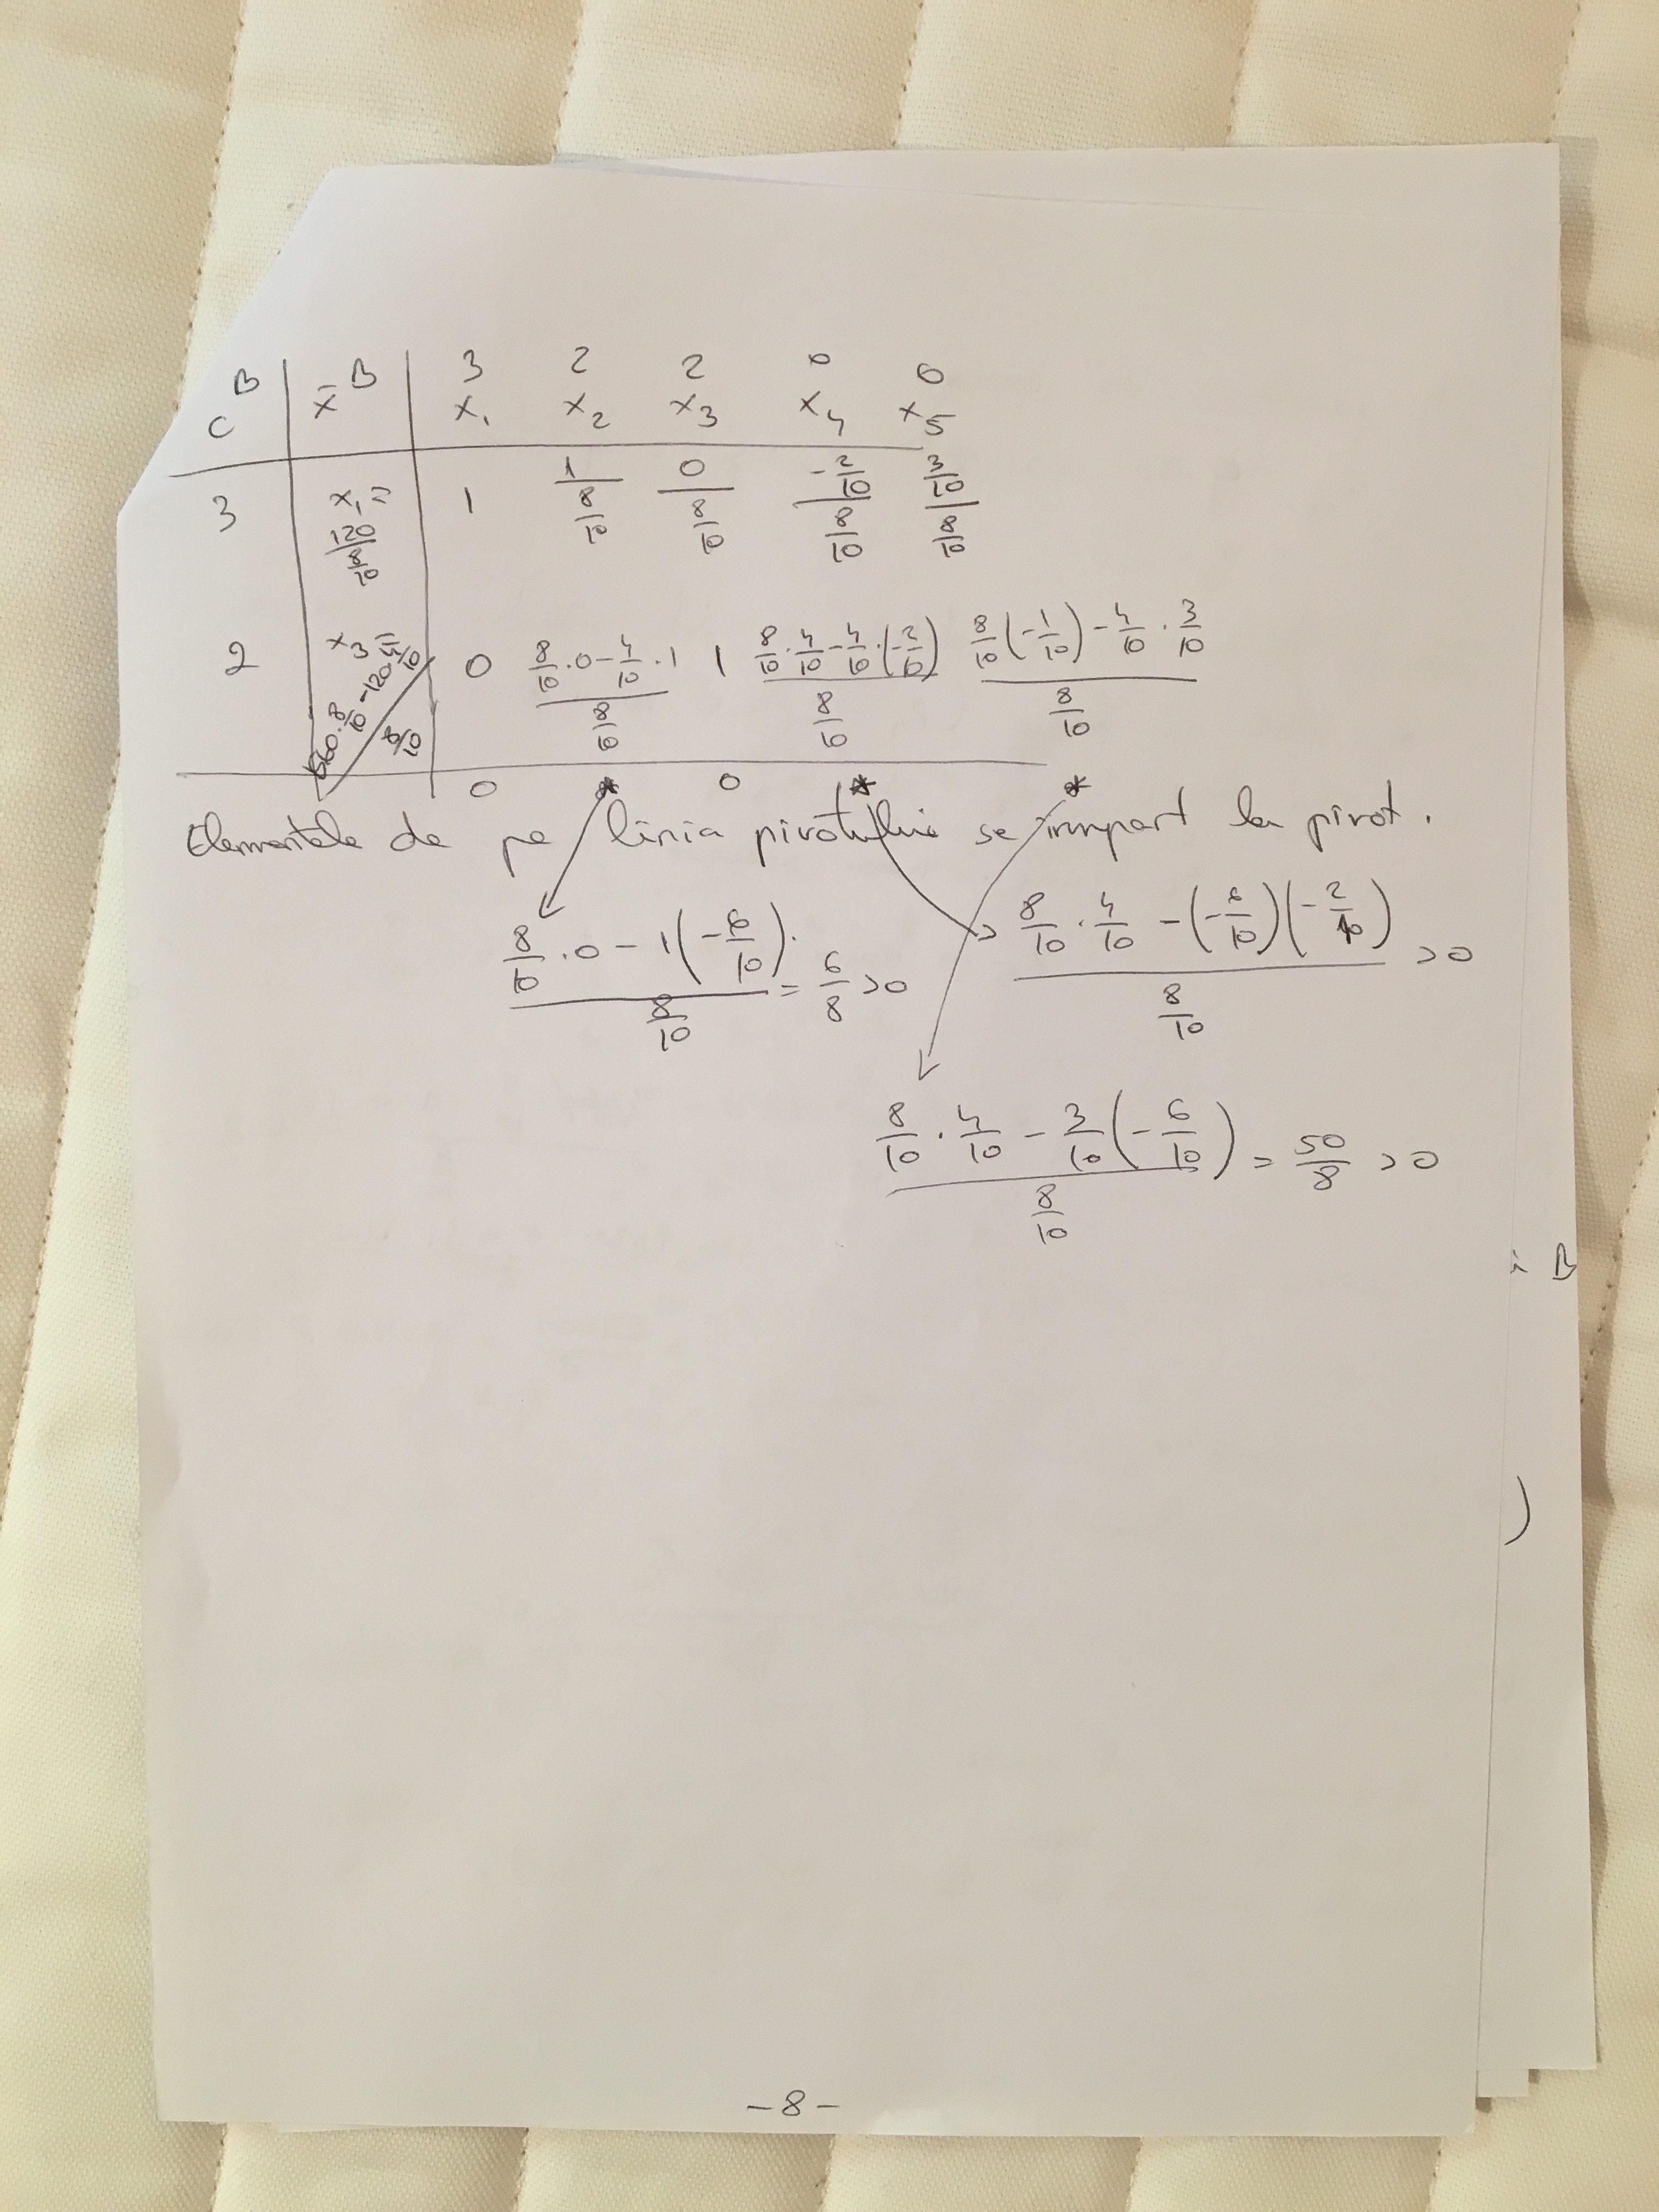 3 2 2 0 0
C^B | x̄^B | x₁ x₂ x₃ x₄ x₅
3 | x₁ = 120/(8/10) | 1 1/(8/10) 0/(8/10) (-2/10)/(8/10) (3/10)/(8/10)
2 | x₃ = (560·8/10 - 120·4/10)/(8/10) | 0 (8/10·0 - 4/10·1)/(8/10) 1 (8/10·4/10 - 4/10·(-2/10))/(8/10) (8/10(-1/10) - 4/10·3/10)/(8/10)
0 * 0 * *
Elementele de pe linia pivotului se împart la pivot.
(8/10·0 - 1(-6/10))/(8/10) = 6/8 >0
(8/10·4/10 - (-6/10)(-2/10))/(8/10) >0
(8/10·4/10 - 3/10(-6/10))/(8/10) = 50/8 >0
B
)
-8-